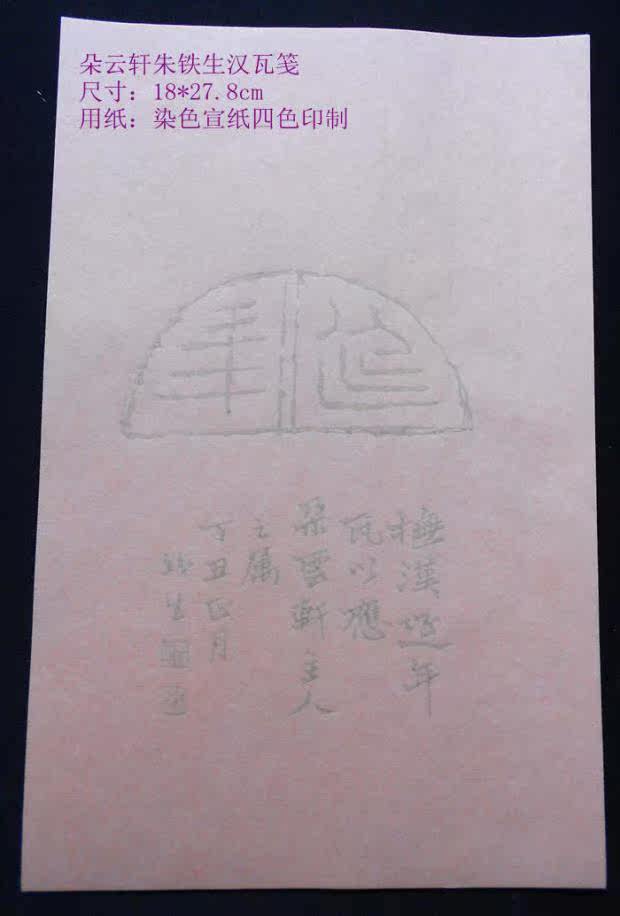 朵云轩朱铁生汉瓦笺
尺寸：18*27.8cm
用纸：染色宣纸四色印制
延年
橅漢延年
瓦以應
朵雲軒主人
之属
丁丑正月
生